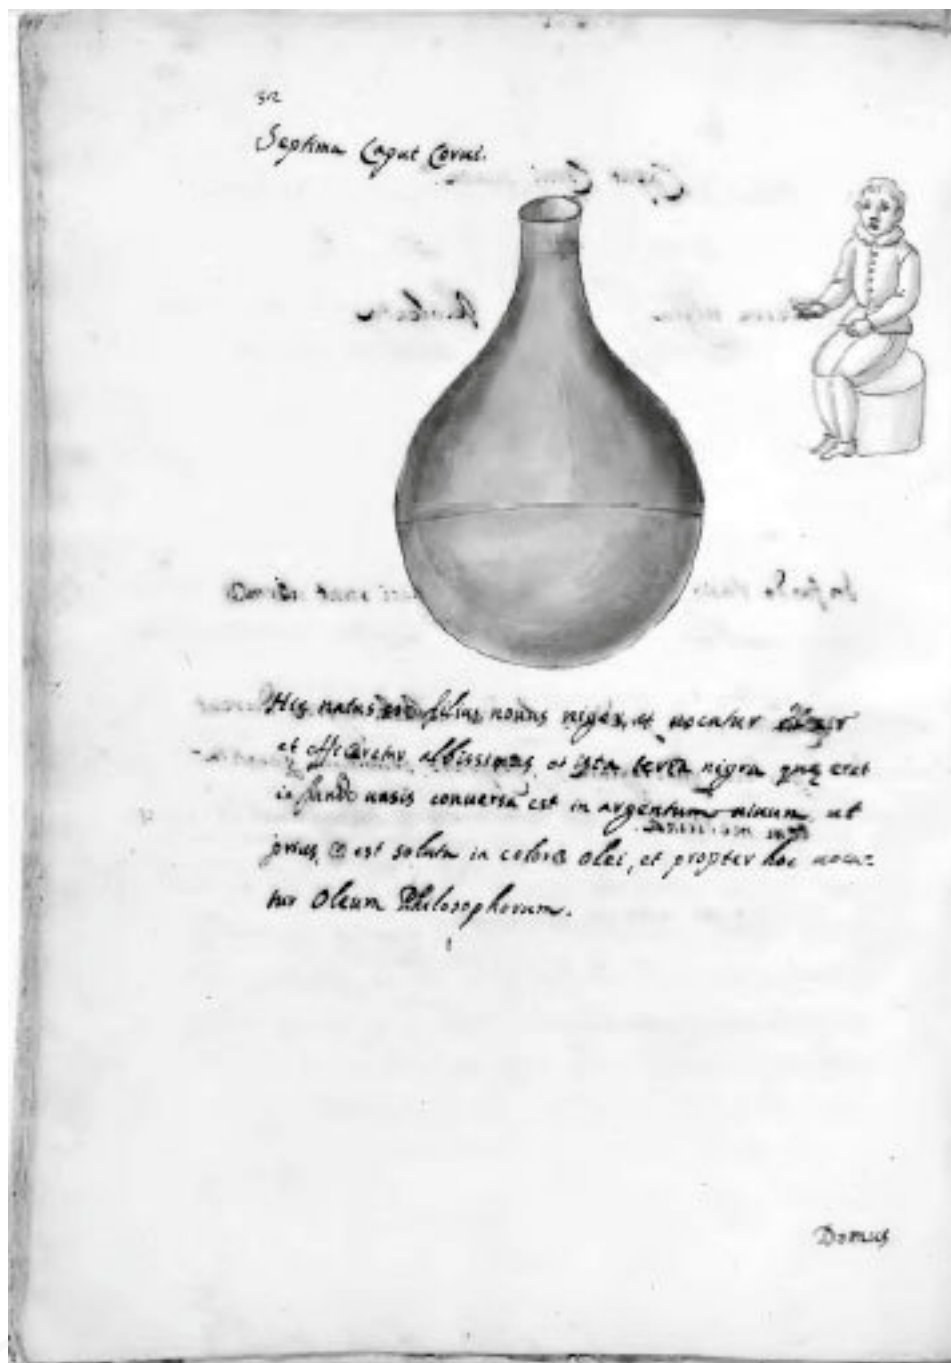 32
Septima Caput Corui.
Hic natus est filius nouus niger, et uocatur Elixir
et efficietur albissimus et ista terra nigra quę erat
in fundo uasis conuersa est in argentum uiuum ut
prius, et est soluta in colore olei, et propter hoc uoca-
tur Oleum Philosophorum.
Domus